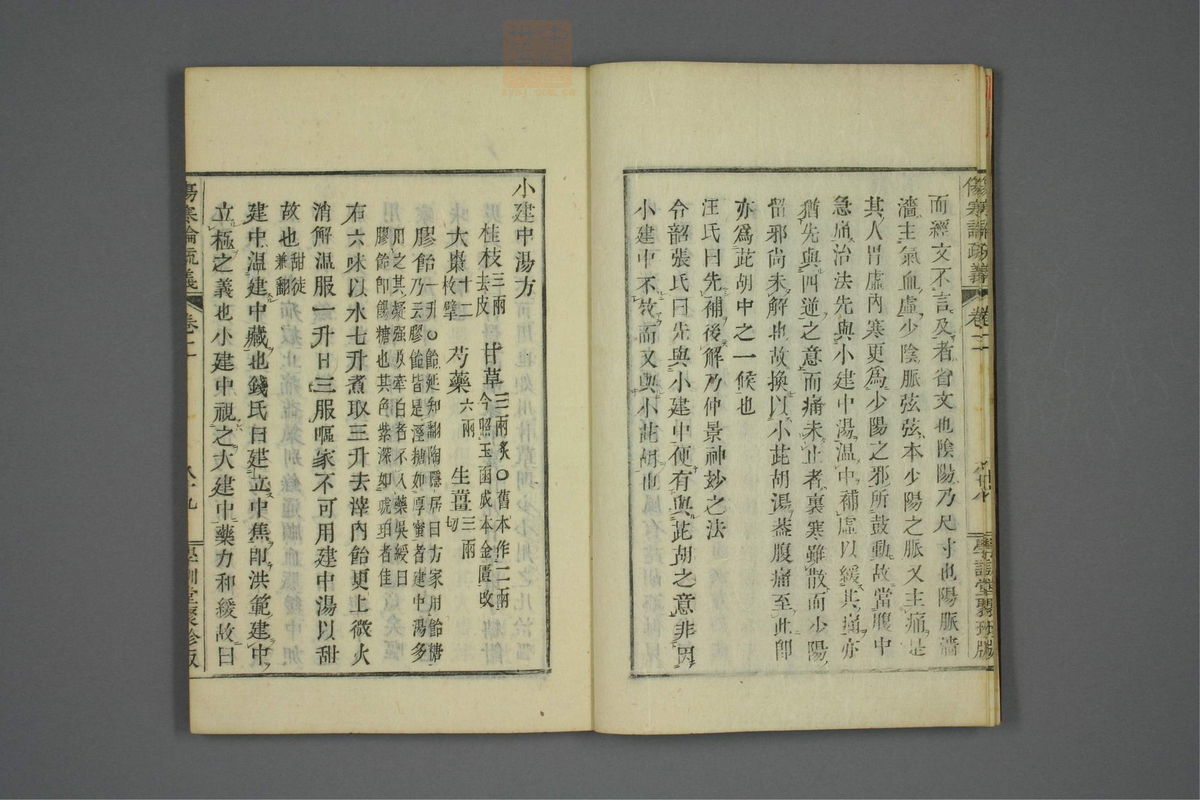 傷寒論疏義
卷二
學訓堂聚珍版
而經文不言及者省文也陰陽乃尺寸也陽脈濇
濇主氣血虛少陰脈弦弦本少陽之脈又主痛是
其人胃虛內寒更爲少陽之邪所鼓動故當腹中
急痛治法先與小建中湯溫中補虛以緩其痛亦
猶先與四逆之意而痛未止者裏寒雖散而少陽
留邪尚未解也故換以小茈胡湯蓋腹痛至此卽
亦爲茈胡中之一候也
汪氏曰先補後解乃仲景神妙之法
令韶張氏曰先與小建中便有與茈胡之意非因
小建中不效而又與小茈胡也
小建中湯方
桂枝三兩去皮 甘草三兩炙○舊本作二兩今照玉函成本金匱改
大棗十二枚擘 芍藥六兩 生薑三兩切
膠飴一升○飴延知翻陶隱居曰方家用飴糖乃云膠飴皆是溼糖如厚蜜者建中湯多
用之其凝强及牽白者不入藥吳綬曰膠飴卽餳糖也其色紫深如琥珀者佳
右六味以水七升煮取三升去滓內飴更上微火
消解溫服一升日三服嘔家不可用建中湯以甜
故也甜徒兼翻
建中溫建中藏也錢氏曰建立中焦卽洪範建中
立極之義也小建中視之大建中藥力和緩故曰
傷寒論疏義
卷二
八九
學訓堂聚珍版